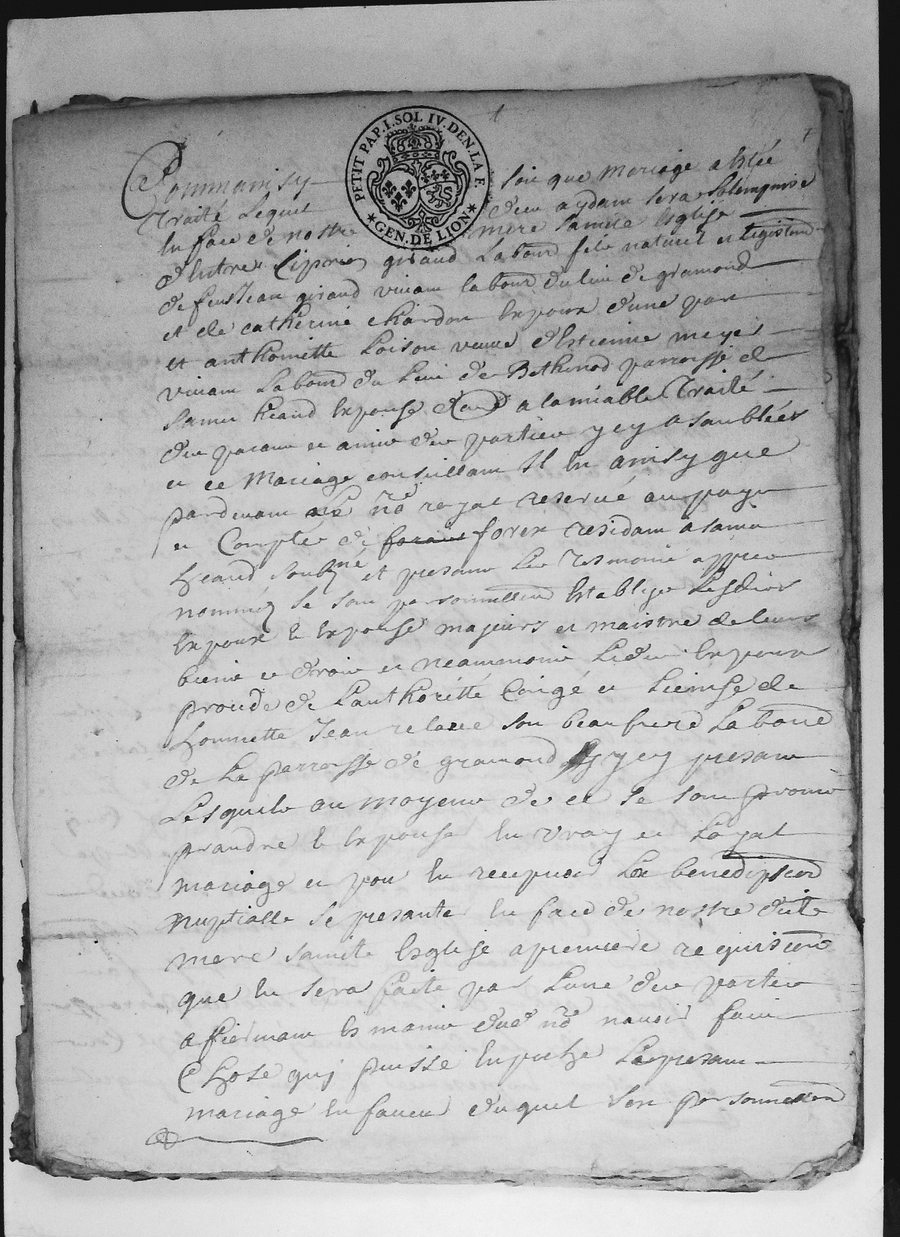 PETIT PAP. I. SOL IV. DEN. LA F.
GEN. DE LION
Comm ainsy soit que mariage a esté
Traité Lequel dieu aydant sera solempnizé
En face de nostre mere sainte Esglise
d'Entre giraud Labour fils naturel et Legistime
de feu Jean giraud vivant labour du lieu de gramond
et de catherine chardon Expoux d'une part
et anthoinette Loison veuve d'Estienne
vivant Labour du Lieu de Bethenod parroisse de
saint heand Expouse d'au a lamiable Traité
des parans et amis des parties y cy asamblées
et ce mariage conseillant Il En ainsy que
pardevant Le no.re royal reservé au pays
et Compté de forex residant a saint
heand soub.né et presant Les Tesmoins appres
nommés se sont personnellem Establys Lesdicts
Expoux et Expouse majeurs et maistre de leurs
biens et droits et neanmoins Ledit Expoux
procède de L'authoritté Congé et License de
honnette Jean relave son beau frere Labour
de La parroisse de gramond y cy presant
Lesquels au moyens de ce se sont promis
prandre et Expouser En vray et Loyal
mariage et pour En recepvoir La benedipsion
nuptialle se presanter En face de nostre dicte
mere saincte Esglise a premiere requisision
que En sera faicte par L'une des parties
affiermant Es mains dud no.re navoir faict
Chose quy puisse Enpeche Le presant
mariage En faveur duquel son personnellem